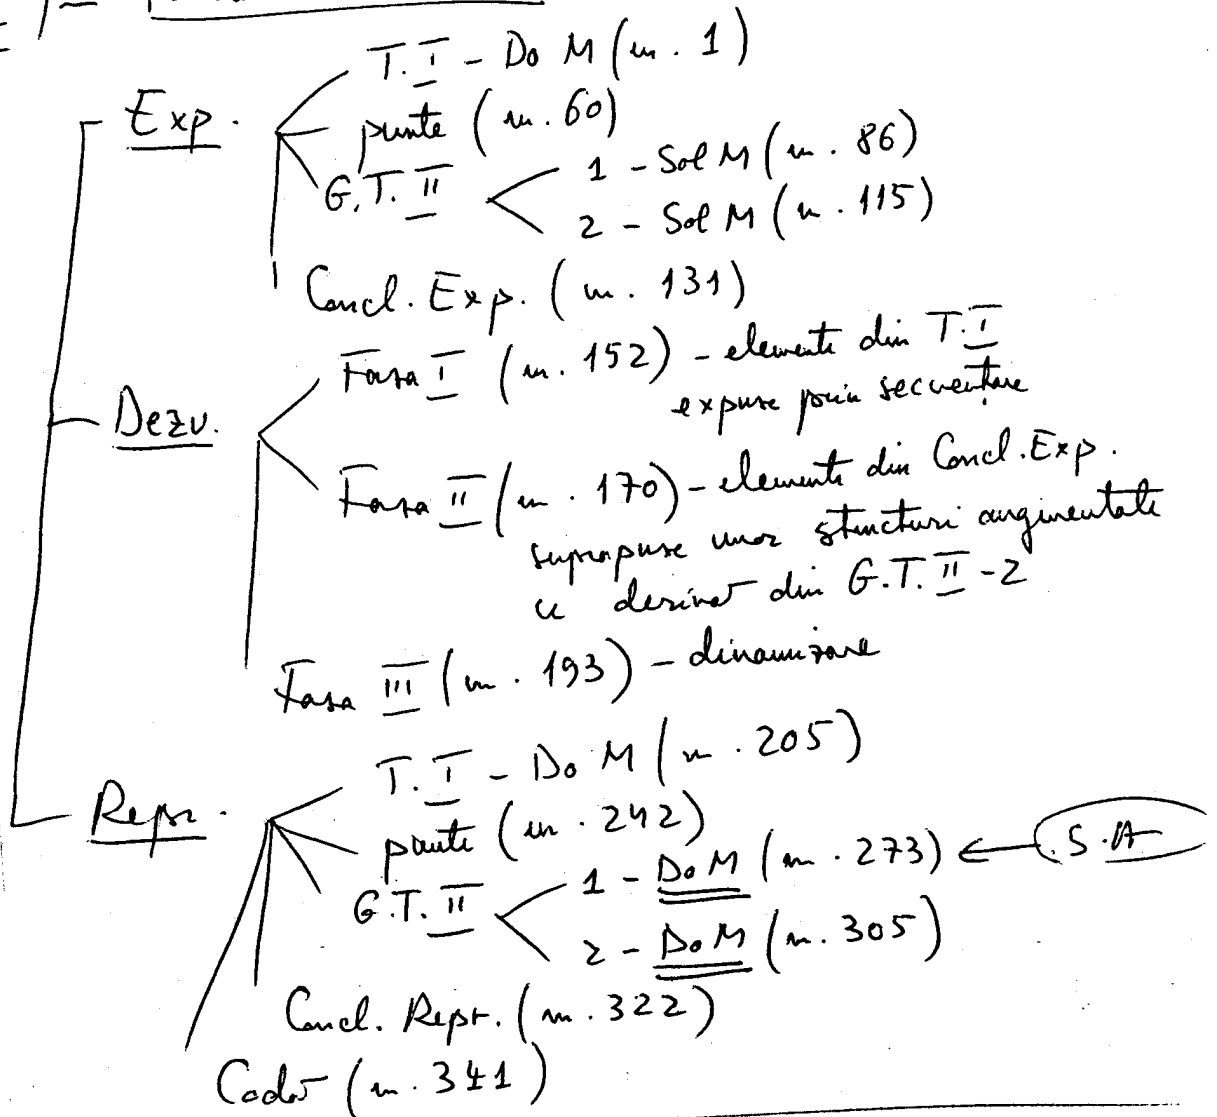 T. I - Do M (m. 1)
Exp.
punte (m. 60)
G.T. II
1 - Sol M (m. 86)
2 - Sol M (m. 115)
Concl. Exp. (m. 131)
Dezv.
Faza I (m. 152) - elemente din T. I
expuse prin secvențare
Faza II (m. 170) - elemente din Concl. Exp.
suprapuse unor structuri augmentate
ce derivă din G.T. II - 2
Faza III (m. 193) - dinamizare
Repr.
T. I - Do M (m. 205)
punte (m. 242)
G.T. II
1 - Do M (m. 273) ← S.A
2 - Do M (m. 305)
Concl. Repr. (m. 322)
Coda (m. 341)